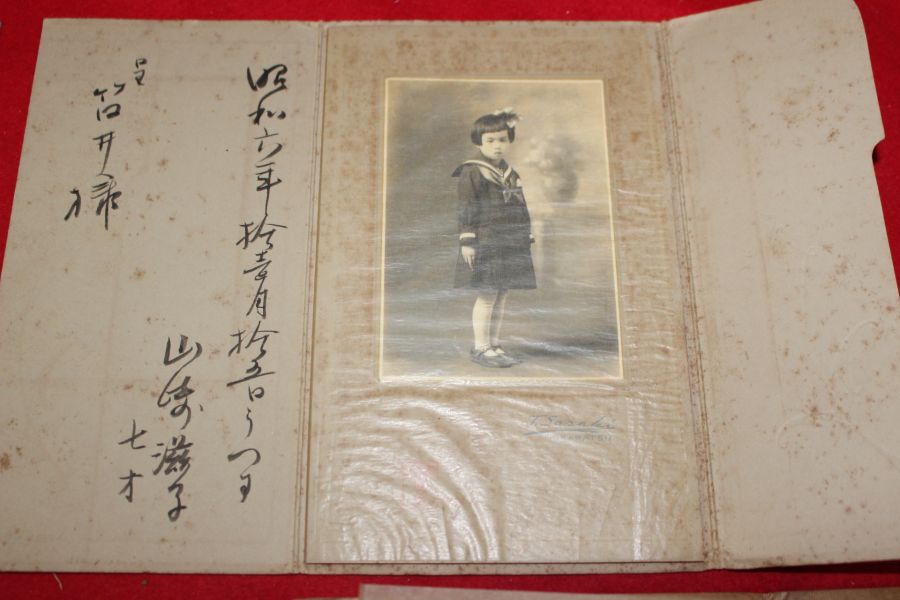 昭和六年拾壱月拾五日うつす
山崎滋子
七才
呈
筒井様
T. Sasaki